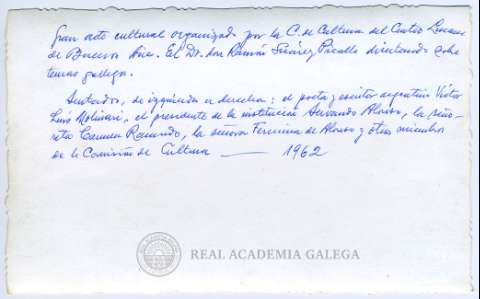 Gran acto cultural organizado por la C. de Cultura del Centro Lucense
de Buenos Aires. El Dr. don Ramón Suárez Picallo disertando sobre
temas gallegos.
Sentados, de izquierda a derecha: el poeta y escritor argentino Víctor
Luis Molinari, el presidente de la institución Servando Alonso, la seño-
rita Carmen Raimundo, la señora Fermina de Alonso y otros miembros
de la Comisión de Cultura — 1962
REAL ACADEMIA GALEGA